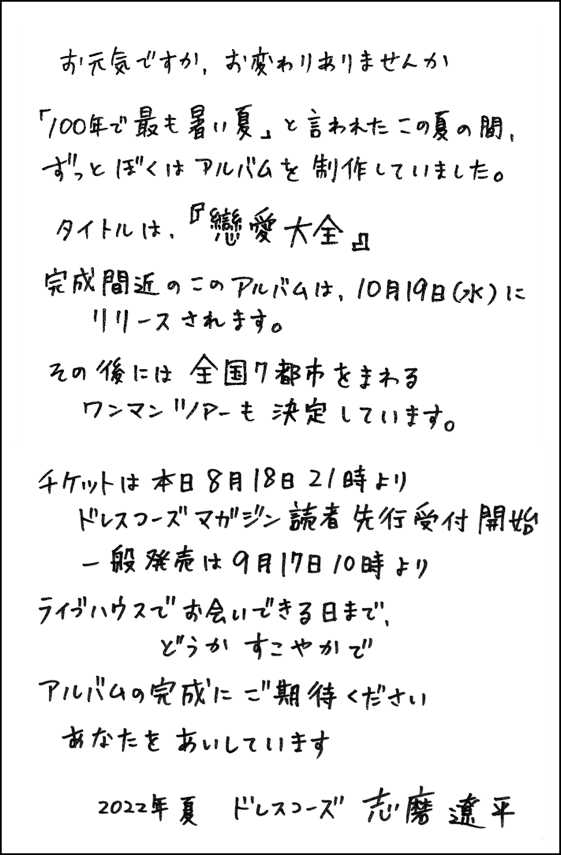 お元気ですか、お変わりありませんか
「100年で最も暑い夏」と言われたこの夏の間、
ずっとぼくはアルバムを制作していました。
タイトルは、『戀愛大全』
完成間近のこのアルバムは、10月19日(水)に
リリースされます。
その後には全国7都市をまわる
ワンマンツアーも決定しています。
チケットは本日8月18日21時より
ドレスコーズマガジン読者先行受付開始
一般発売は9月17日10時より
ライブハウスでお会いできる日まで、
どうかすこやかで
アルバムの完成にご期待ください
あなたをあいしています
2022年夏 ドレスコーズ 志磨遼平